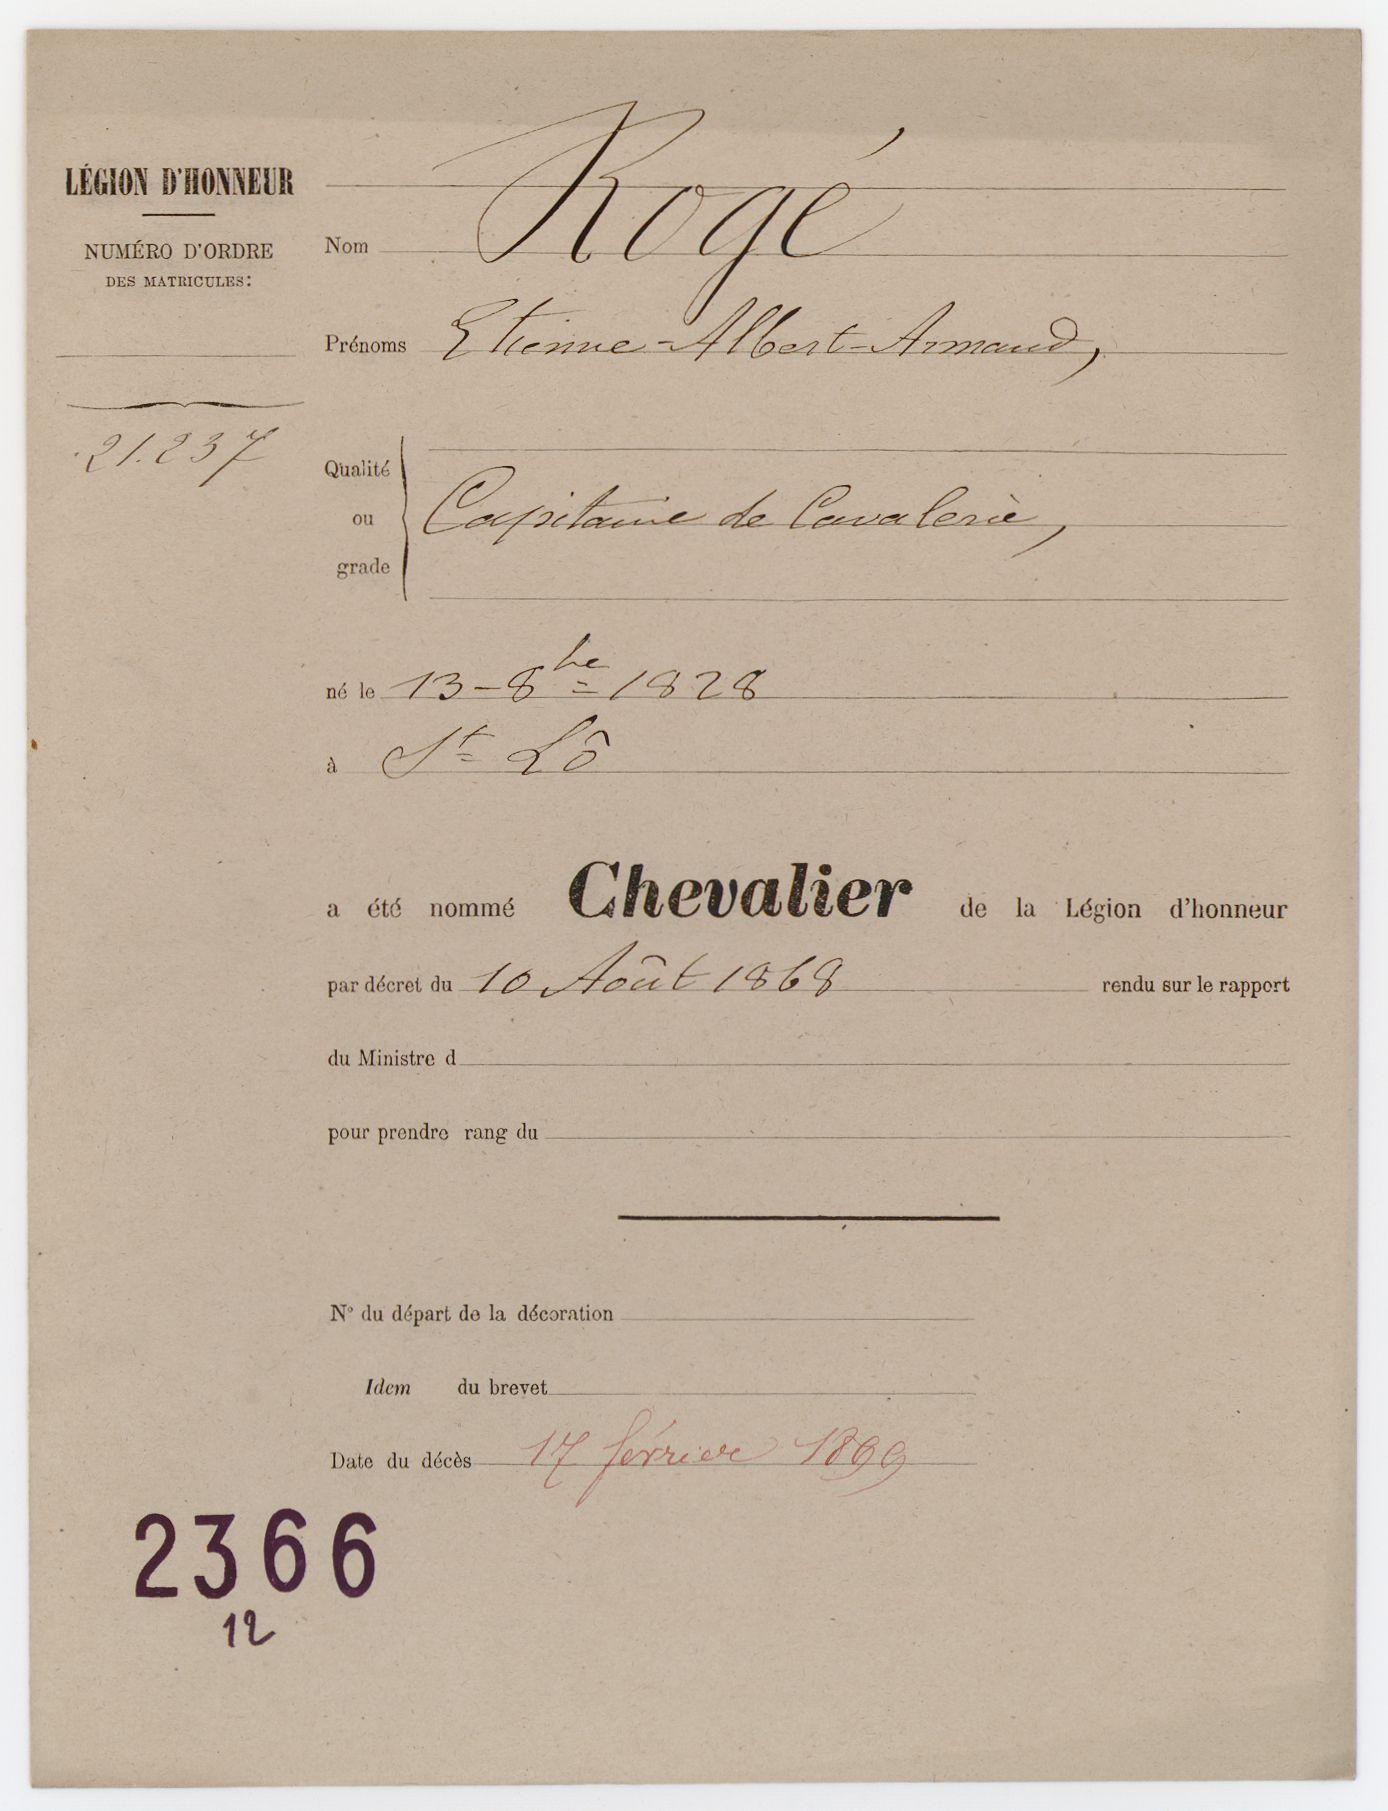 LÉGION D'HONNEUR
NUMÉRO D'ORDRE
DES MATRICULES:
21.237
Nom Rogé
Prénoms Etienne-Albert-Armand,
Qualité
ou
grade
Capitaine de Cavalerie,
né le 13-8bre 1828
à St Lô
a été nommé Chevalier de la Légion d'honneur
par décret du 10 Août 1868 rendu sur le rapport
du Ministre d
pour prendre rang du
N° du départ de la décoration
Idem du brevet
Date du décès 17 février 1899
2366
12